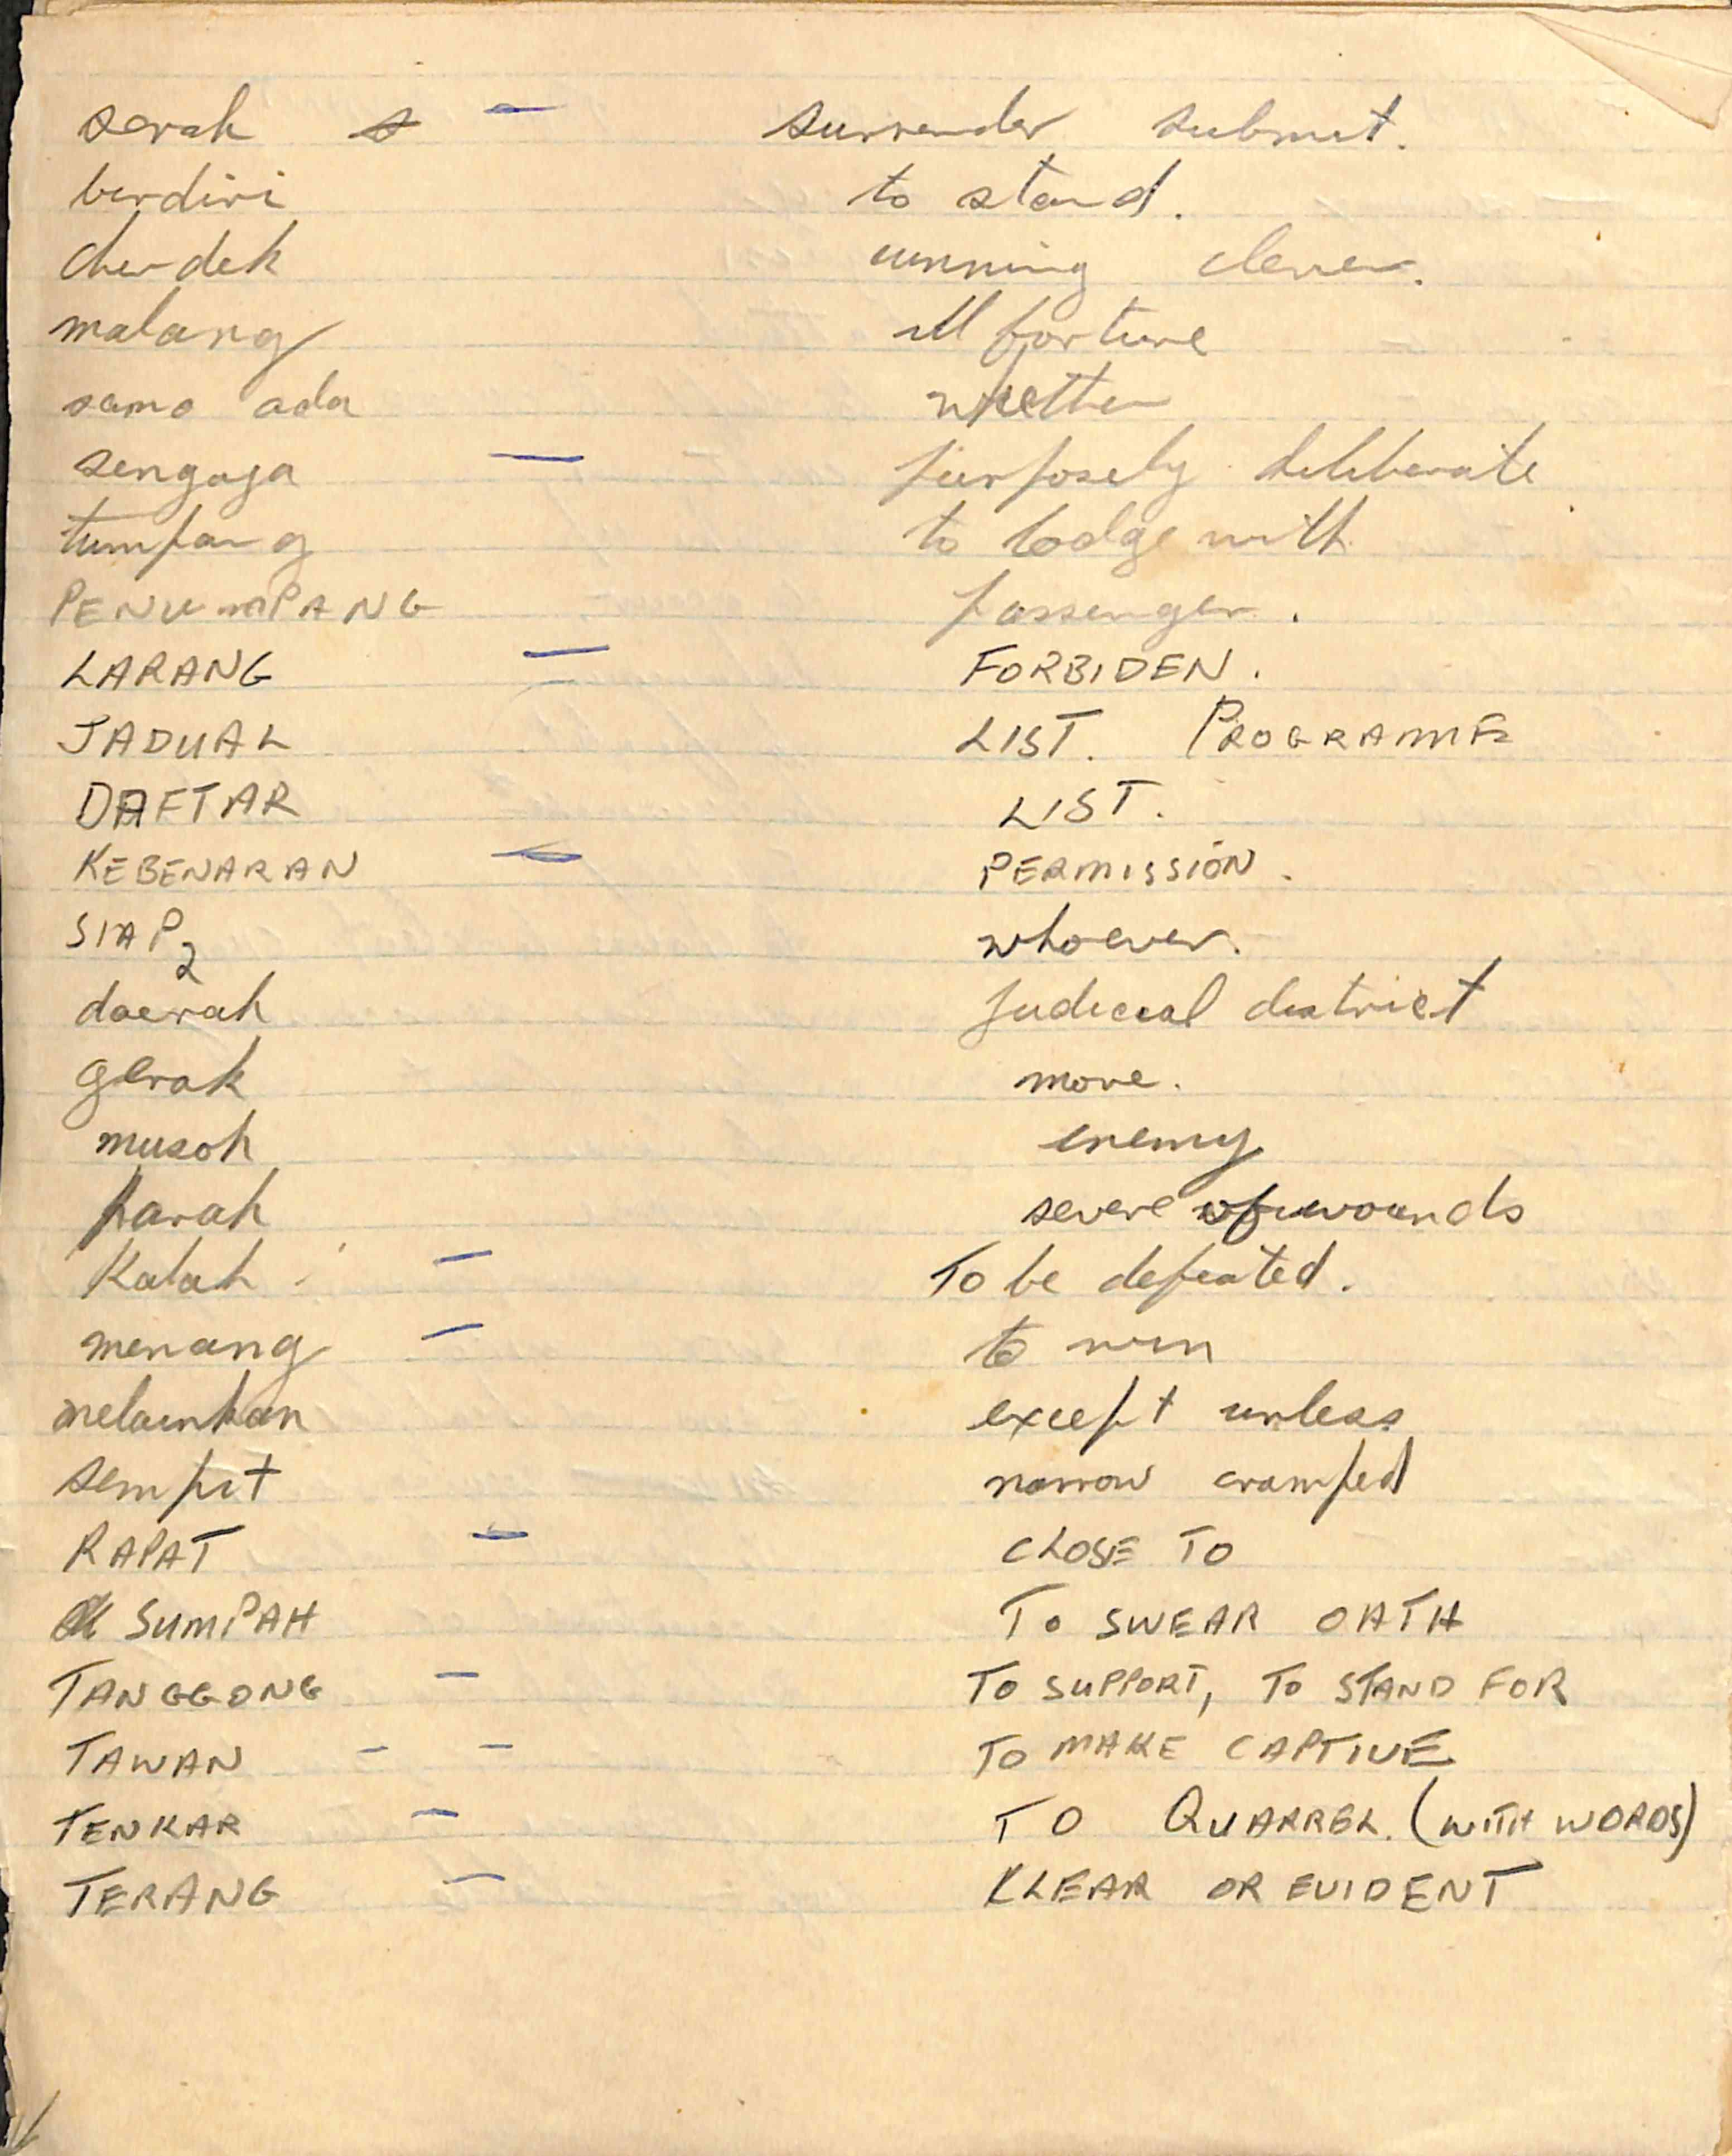 serah s — surrender submit.
berdiri to stand.
cherdek cunning clever.
malang ill fortune
sama ada whether
sengaja — purposely deliberate
tumpang to lodge with
PENUMPANG passenger.
LARANG — FORBIDEN.
JADUAL LIST. PROGRAMME
DAFTAR LIST.
KEBENARAN — PERMISSION.
SIAP2 whoever.
daerah judicial district
gerak move.
musoh enemy
parah severe of wounds
Kalah — To be defeated.
menang — to win
melainkan except unless
sempit narrow cramped
RAPAT — CLOSE TO
SUMPAH TO SWEAR OATH
TANGGONG — TO SUPPORT, TO STAND FOR
TAWAN - — TO MAKE CAPTIVE
TENKAR — TO QUARREL. (WITH WORDS)
TERANG — KLEAR OR EVIDENT